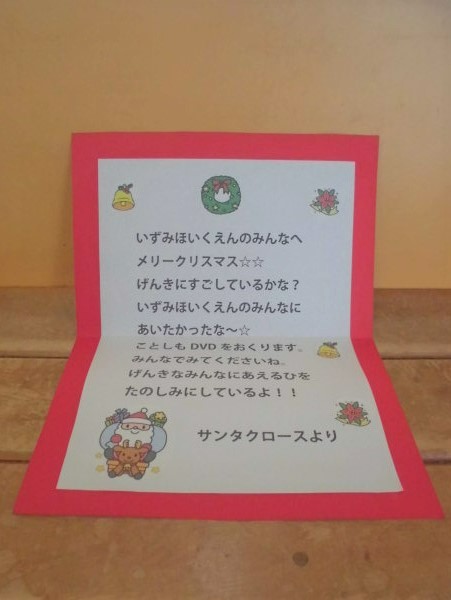 いずみほいくえんのみんなへ
メリークリスマス☆☆
げんきにすごしているかな？
いずみほいくえんのみんなに
あいたかったな～☆
ことしもDVDをおくります。
みんなでみてくださいね。
げんきなみんなにあえるひを
たのしみにしているよ！！
サンタクロースより